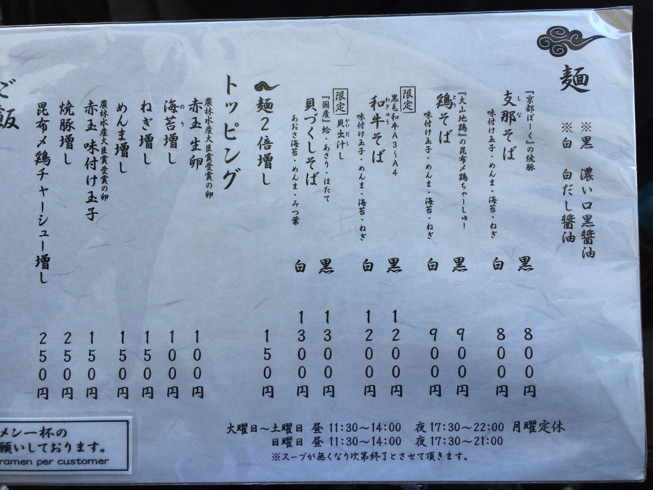 麺
※黒 濃い口黒醤油
※白 白だし醤油
『京都ぽーく』の焼豚
支那そば
味付け玉子・めんま・海苔・ねぎ
黒 800円
白 800円
『大山地鶏』の昆布〆鶏ちゃーしゅー
鶏そば
味付け玉子・めんま・海苔・ねぎ
黒 900円
白 900円
限定
黒毛和牛A3〜A4
和牛そば
味付け玉子・めんま・海苔・ねぎ
黒 1200円
白 1200円
限定
『国産』蛤・あさり・ほたて
貝づくしそば
あおさ海苔・めんま・みつ葉
黒 1300円
白 1300円
麺2倍増し 150円
トッピング
農林水産大臣賞受賞の卵
赤玉 生卵 100円
海苔増し 100円
ねぎ増し 150円
めんま増し 150円
農林水産大臣賞受賞の卵
赤玉 味付け玉子 150円
焼豚増し 250円
昆布〆鶏チャーシュー増し 250円
ご飯
火曜日〜土曜日 昼 11:30〜14:00 夜 17:30〜22:00 月曜定休
日曜日 昼 11:30〜14:00 夜 17:30〜21:00
※スープが無くなり次第終了とさせて頂きます。
メン一杯の
願いしております。
ramen per customer